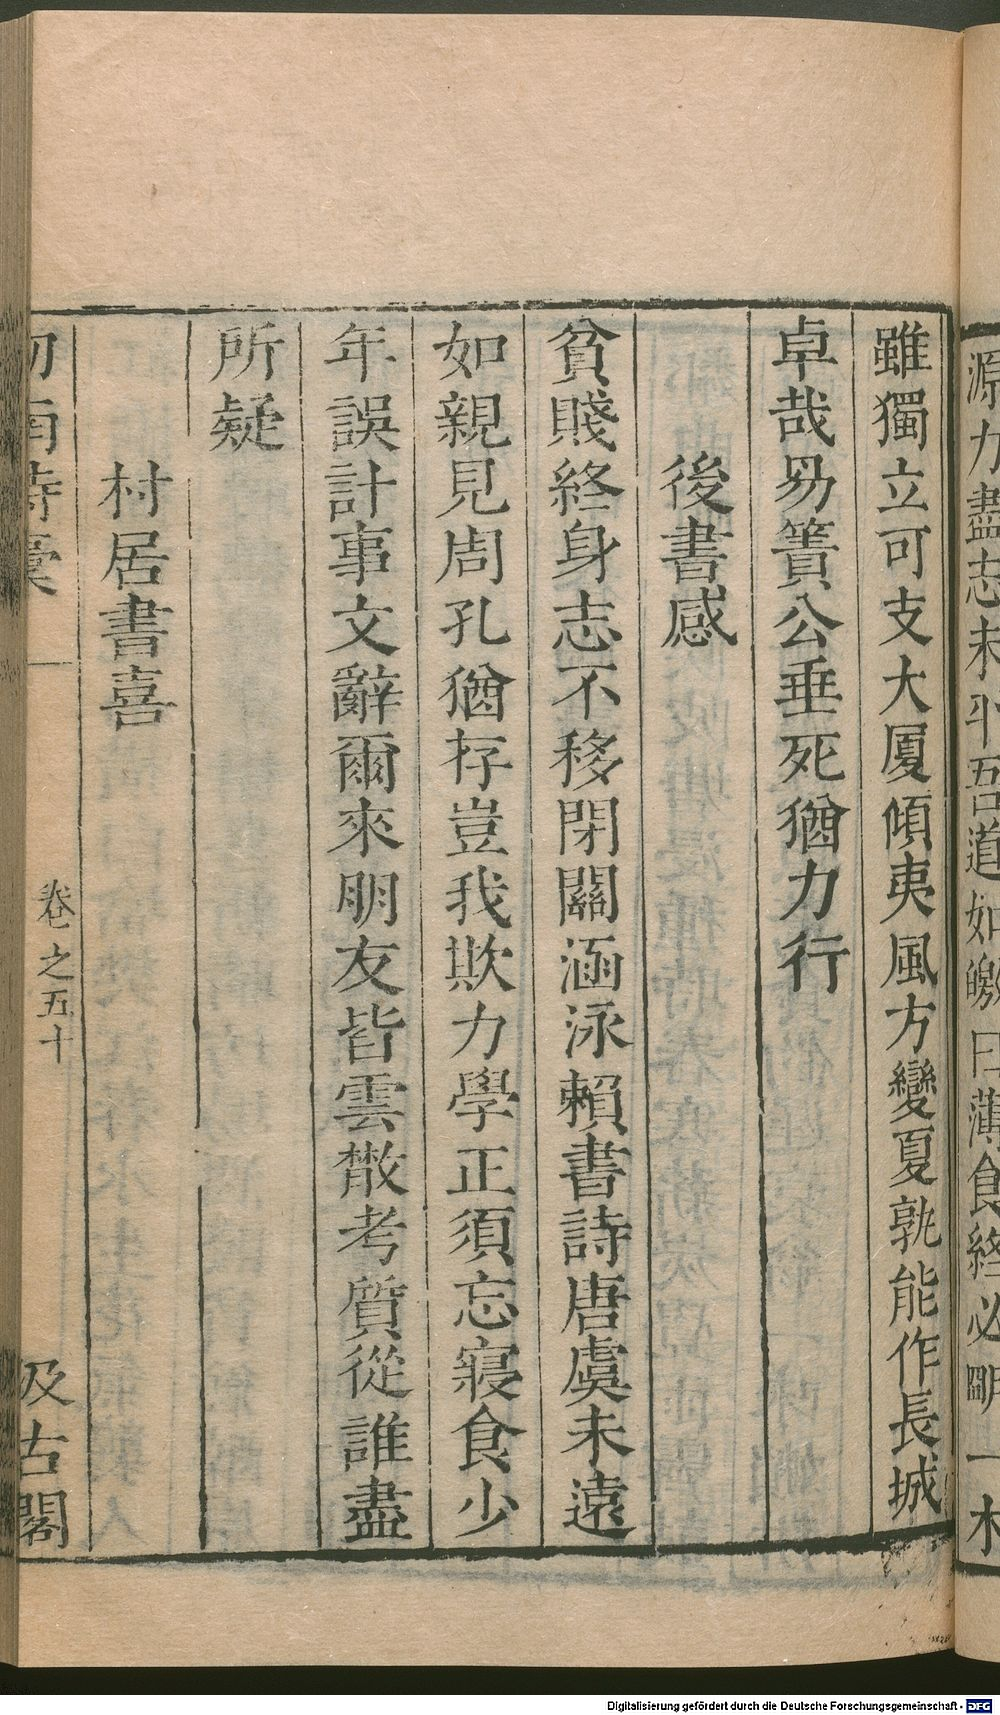 源力盡志未平吾道如皦日薄食終必明一木
雖獨立可支大厦傾夷風方變夏孰能作長城
卓哉易簀公垂死猶力行
後書感
貧賤終身志不移閉關涵泳賴書詩唐虞未遠
如親見周孔猶存豈我欺力學正須忘寢食少
年誤計事文辭爾來朋友皆雲散考質從誰盡
所疑
村居書喜
劍南詩稾
卷之五十
汲古閣
Digitalisierung gefördert durch die Deutsche Forschungsgemeinschaft - DFG